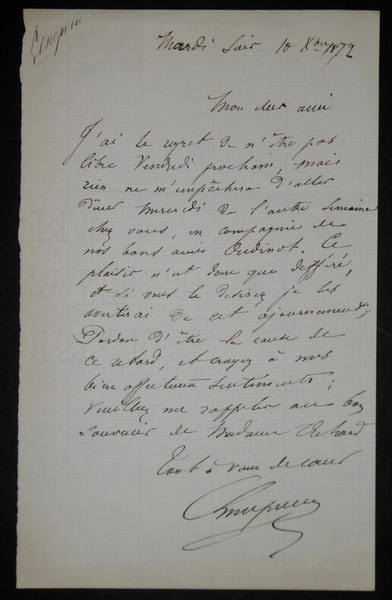 Mardi Soir 10 Xbre 1872
Mon cher ami
J'ai le regret de n'être pas
libre Vendredi prochain, mais
rien ne m'empêchera d'aller
diner Mercredi de l'autre Semaine
chez vous, en compagnie de
nos bons amis Oudinot. Ce
plaisir n'est donc que différé,
et si vous le desirez je les
avertirai de cet ajournement.
Pardon d'être la cause de
ce retard, et croyez à mes
bien affectueux sentiments ;
Veuillez me rappeler au bon
souvenir de Madame
Tout à vous de coeur